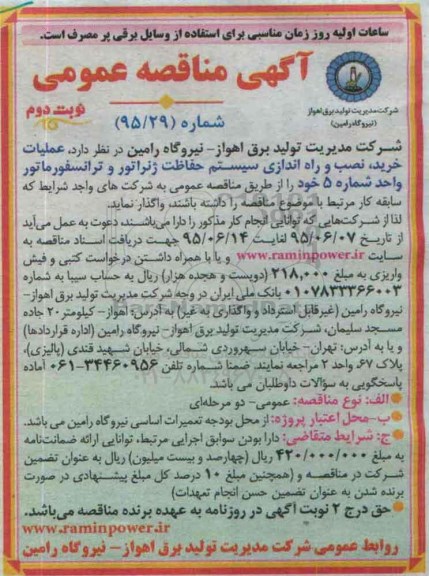 ساعات اولیه روز زمان مناسبی برای استفاده از وسایل برقی پر مصرف است.
آگهی مناقصه عمومی
شماره (۹۵/۲۹)
نوبت دوم
شرکت مدیریت تولید برق اهواز
(نیروگاه رامین)
شرکت مدیریت تولید برق اهواز- نیروگاه رامین در نظر دارد، عملیات
خرید، نصب و راه اندازی سیستم حفاظت ژنراتور و ترانسفورماتور
واحد شماره ۵ خود را از طریق مناقصه عمومی به شرکت های واجد شرایط که
سابقه کار مرتبط با موضوع مناقصه را داشته باشند، واگذار نماید.
لذا از شرکت‌هایی که توانایی انجام کار مذکور را دارا می‌باشند، دعوت به عمل می‌آید
از تاریخ ۹۵/۰۶/۰۷ لغایت ۹۵/۰۶/۱۴ جهت دریافت اسناد مناقصه به
سایت www.raminpower.ir و یا با همراه داشتن درخواست کتبی و فیش
واریزی به مبلغ ۲۱۸,۰۰۰ (دویست و هجده هزار) ریال به حساب سیبا به شماره
۰۱۰۷۸۳۳۳۶۶۰۰۳ بانک ملی ایران در وجه شرکت مدیریت تولید برق اهواز-
نیروگاه رامین (غیرقابل استرداد و واگذاری به غیر) به آدرس: اهواز- کیلومتر ۲۰ جاده
مسجد سلیمان، شرکت مدیریت تولید برق اهواز- نیروگاه رامین (اداره قراردادها)
و یا به آدرس: تهران- خیابان سهروردی شمالی، خیابان شهید قندی (پالیزی)،
پلاک ۶۷، واحد ۲ مراجعه نمایند. ضمنا شماره تلفن ۳۴۴۶۰۹۵۶-۰۶۱ آماده
پاسخگویی به سؤالات داوطلبان می باشد.
الف: نوع مناقصه: عمومی- دو مرحله‌ای
ب-محل اعتبار پروژه: از محل بودجه تعمیرات اساسی نیروگاه رامین می باشد.
ج: شرایط متقاضی: دارا بودن سوابق اجرایی مرتبط، توانایی ارائه ضمانت‌نامه
به مبلغ ۴۲۰/۰۰۰/۰۰۰ ریال (چهارصد و بیست میلیون) ریال به عنوان تضمین
شرکت در مناقصه و (همچنین مبلغ ۱۰ درصد کل مبلغ پیشنهادی در صورت
برنده شدن به عنوان تضمین حسن انجام تعهدات)
حق درج ۲ نوبت آگهی در روزنامه به عهده برنده مناقصه می‌باشد.
www.raminpower.ir
روابط عمومی شرکت مدیریت تولید برق اهواز- نیروگاه رامین